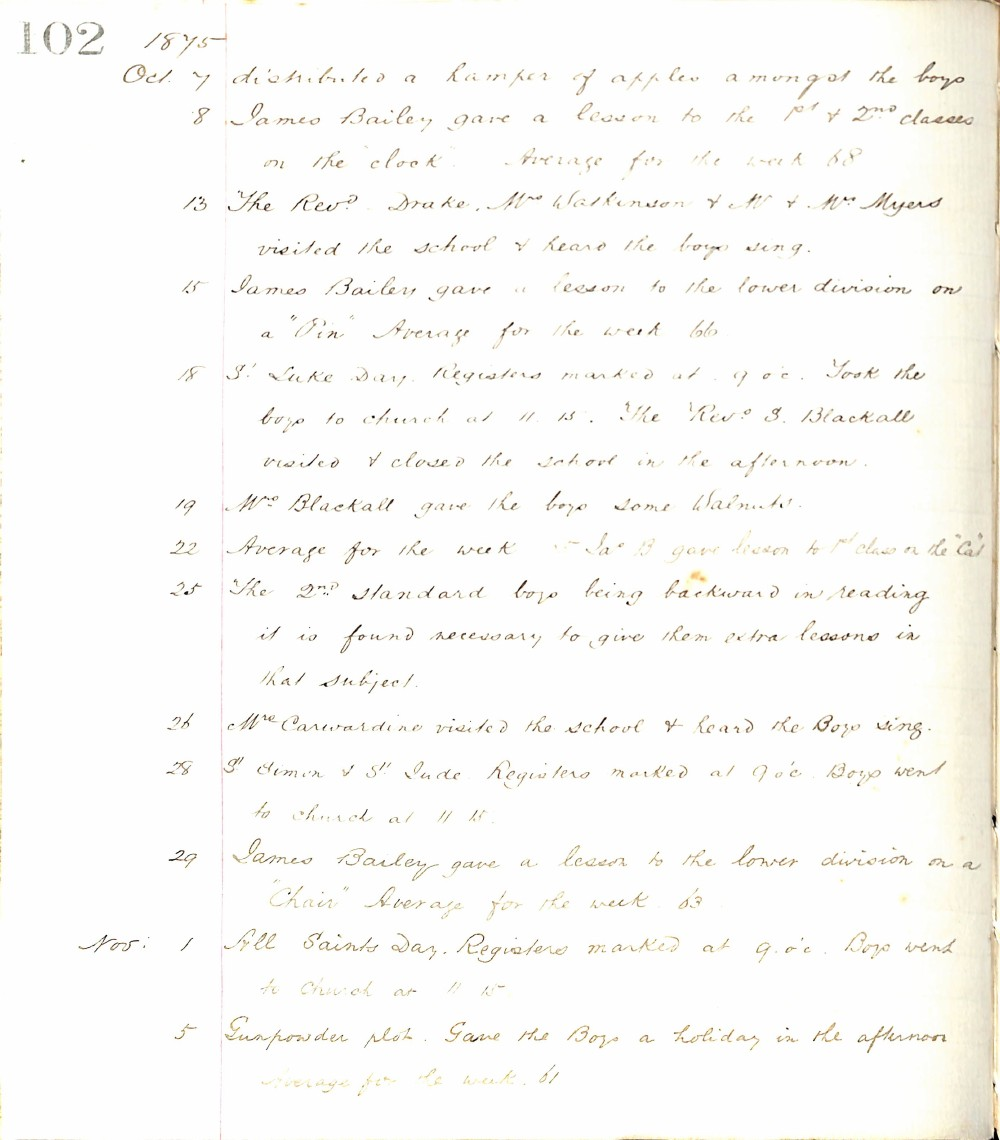 102 1875
Oct. 7 distributed a hamper of apples amongst the boys
8 James Bailey gave a lesson to the 1st & 2nd classes
on the "clock". Average for the week 68
13 The Revd. Drake, Mrs Watkinson & Mr & Mrs Myers
visited the school & heard the boys sing.
15 James Bailey gave a lesson to the lower division on
a "Pin" Average for the week 66
18 St Luke Day. Registers marked at 9 o'c. Took the
boys to church at 11.15. The Revd S. Blackall
visited & closed the school in the afternoon.
19 Mrs Blackall gave the boys some Walnuts.
22 Average for the week Jas B gave lesson to 1st class on the "Cat"
25 The 2nd standard boys being backward in reading
it is found necessary to give them extra lessons in
that subject.
26 Mrs Carwardine visited the school & heard the Boys sing.
28 St Simon & St Jude. Registers marked at 9 o'c. Boys went
to church at 11 15.
29 James Bailey gave a lesson to the lower division on a
"Chair" Average for the week 63
Nov: 1 All Saints Day. Registers marked at 9.o'c. Boys went
to Church at 11 15
5 Gunpowder plot. Gave the Boys a holiday in the afternoon
Average for the week. 61